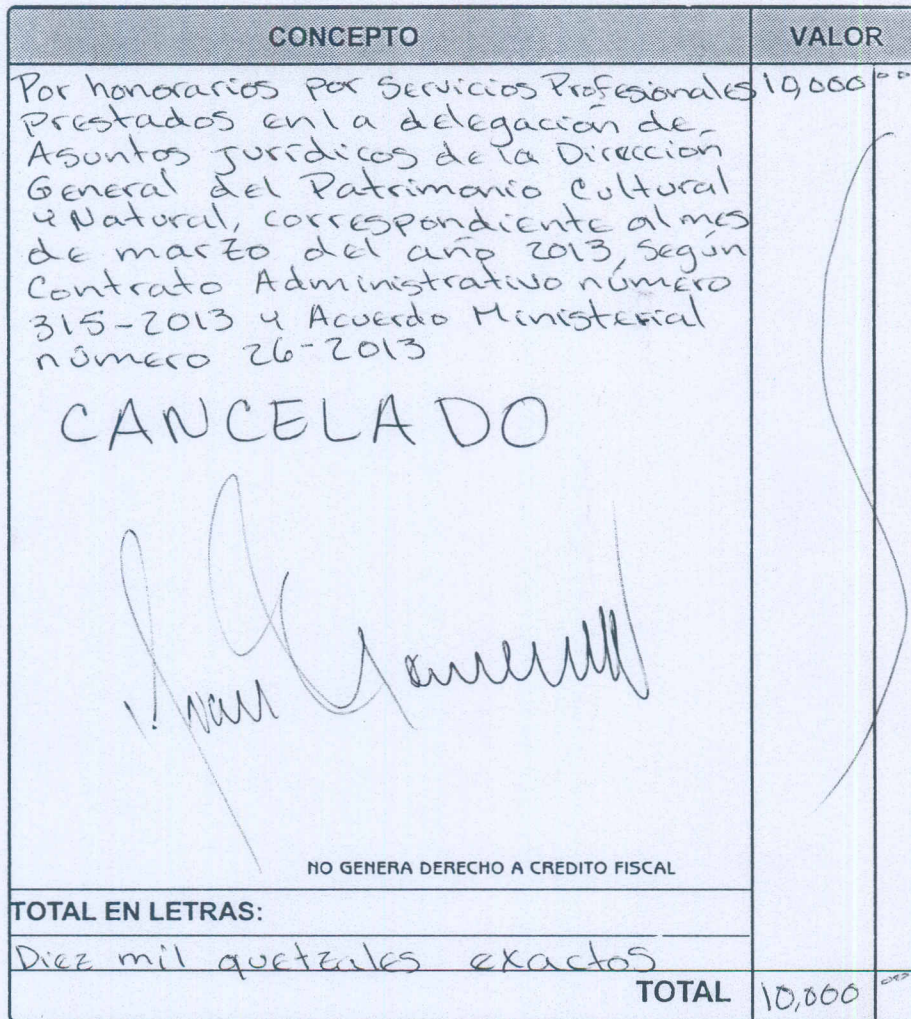 CONCEPTO VALOR
Por honorarios por Servicios Profesionales 10,000 00
Prestados en la delegación de
Asuntos Jurídicos de la Dirección
General del Patrimonio Cultural
y Natural, correspondiente al mes
de marzo del año 2013, Según
Contrato Administrativo número
315-2013 y Acuerdo Ministerial
número 26-2013
CANCELADO
NO GENERA DERECHO A CREDITO FISCAL
TOTAL EN LETRAS:
Diez mil quetzales exactos
TOTAL 10,000 00